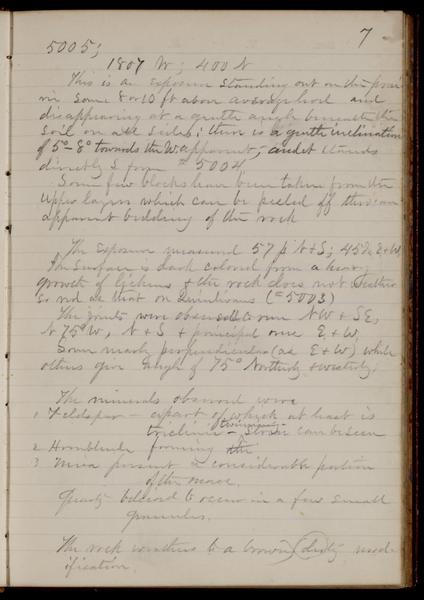 7
5005;
1807 W; 400 N
This is an exposure standing out on the prai-
rie some 8 or 10 ft above and
disappearing at a gentle angle beneath the
soil on all sides; there is a gentle inclination
of 5°-8° towards the W apparent, and it stands
directly S from #5004
Some few blocks have been taken from the
upper layers which can be peeled off thro' an
apparent bedding of the rock
The exposure measured 57 p N & S; 45 E & W,
The surface is dark colored from a heavy
growth of lichens & the rock does not weather
so red as that on (#5003)
The joints were observed to run NW & SE,
N 75° W, N & S & principal one E & W,
Some nearly perpendicular (as E & W) while
others give angle of 75° Northerly & westerly.
The minerals observed were
1 Feldspar - a part of which at least is
triclinic - can be seen
2 Hornblende forming the
3 Mica present a considerable portion
of the mass.
Quartz believed to occur in a few small
granules.
The rock weathers to a brown (dirty) mod-
ification.